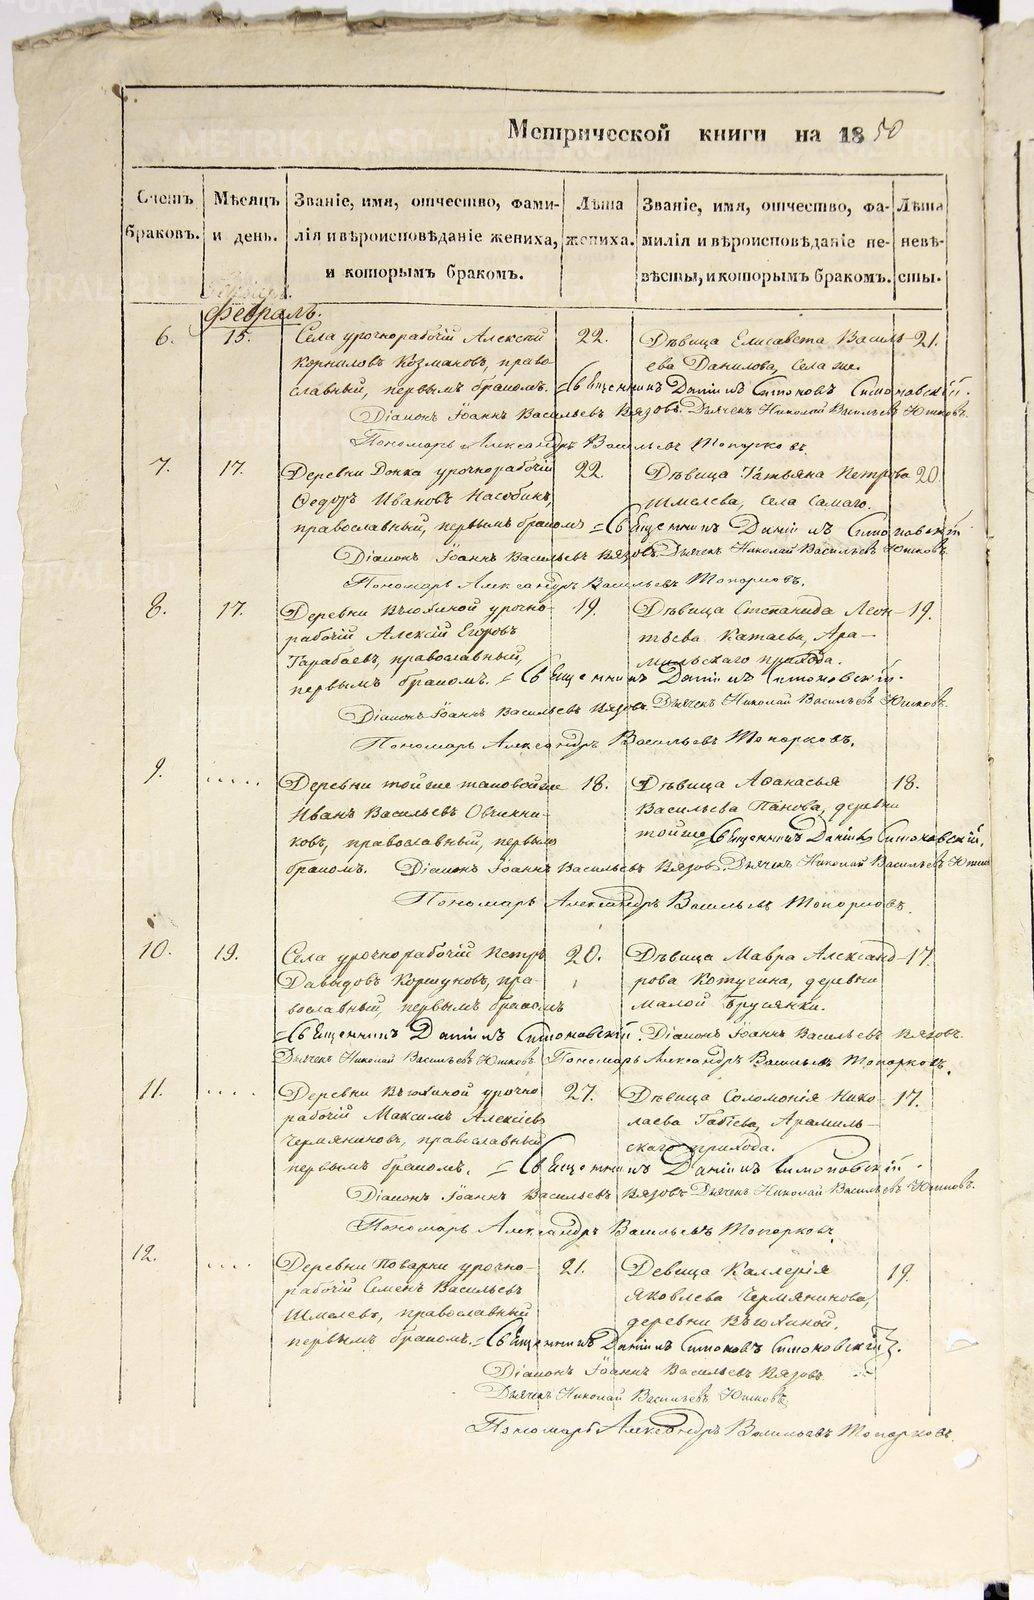 Метрической книги на 1850
Счетъ браковъ.
Мѣсяцъ и день.
Званіе, имя, отчество, фами-
лія и вѣроисповѣданіе жениха,
и которымъ бракомъ.
Лѣта жениха.
Званіе, имя, отчество, фа-
милія и вѣроисповѣданіе не-
вѣсты, и которымъ бракомъ.
Лѣта невѣ-
сты.
Февраль.
6. 15. Села урочнорабочій Алексѣй 22. Дѣвица Елисавета Василь- 21.
Корниловъ Козмаковъ, право- ева Данилова, села
славный, первымъ бракомъ. Священникъ Даніилъ Симоновъ Симоновскій.
Діаконъ Іоаннъ Васильевъ Вязовъ. Дьячекъ Николай Васильевъ Юшковъ.
Пономарь Александръ Васильевъ Топорковъ.
7. 17. Деревни урочнорабочій 22. Дѣвица Татьяна Петрова 20.
Ѳедоръ Ивановъ Насобинъ, Шмелева, села самаго.
православный, первымъ бракомъ = Священникъ Даніилъ Симоновскій
Діаконъ Іоаннъ Васильевъ Вязовъ. Дьячекъ Николай Васильевъ Юшковъ.
Пономарь Александръ Васильевъ Топорковъ.
8. 17. Деревни Вьюхиной урочно- 19. Дѣвица Степанида Леон- 19.
рабочій Алексій Егоровъ тьева Катаева, Ара-
Тарабаевъ, православный, мильскаго прихода.
первымъ бракомъ. = Священникъ Даніилъ Симоновскій.
Діаконъ Іоаннъ Васильевъ Вязовъ. Дьячекъ Николай Васильевъ Юшковъ.
Пономарь Александръ Васильевъ Топорковъ.
9. ..... Деревни тойже таковойже 18. Дѣвица Аѳанасья 18.
Иванъ Васильевъ Овчинни- Васильева Панова, деревни
ковъ, православный, первымъ тойже Священникъ Даніилъ Симоновскій.
бракомъ. Діаконъ Іоаннъ Васильевъ Вязовъ. Дьячекъ Николай Васильевъ
Пономарь Александръ Васильевъ Топорковъ.
10. 19. Села урочнорабочій Петръ 20. Дѣвица Мавра Александ- 17.
Давыдовъ Коршуновъ, пра- рова Котугина, деревни
вославный, первымъ бракомъ малой Брусянки.
= Священникъ Даніилъ Симоновскій. Діаконъ Іоаннъ Васильевъ Вязовъ.
Дьячекъ Николай Васильевъ Юшковъ. Пономарь Александръ Васильевъ Топорковъ.
11. .... Деревни Вьюхиной урочно- 27. Дѣвица Соломонія Нико- 17.
рабочій Максимъ Алексіевъ лаева Арамиль-
Чермяниновъ, православный скаго прихода.
первымъ бракомъ. = Священникъ Даніилъ Симоновскій.
Діаконъ Іоаннъ Васильевъ Вязовъ Дьячекъ Николай Васильевъ Юшковъ.
Пономарь Александръ Васильевъ Топорковъ.
12. .... Деревни Поварни урочно- 21. Девица Каллерія 19.
рабочій Семенъ Васильевъ Яковлева Чермянинова,
Шмелевъ, православный деревни Вьюхиной.
первымъ бракомъ. = Священникъ Даніилъ Симоновъ Симоновскій.
Діаконъ Іоаннъ Васильевъ Вязовъ.
Дьячекъ Николай Васильевъ Юшковъ.
Пономарь Александръ Васильевъ Топорковъ.